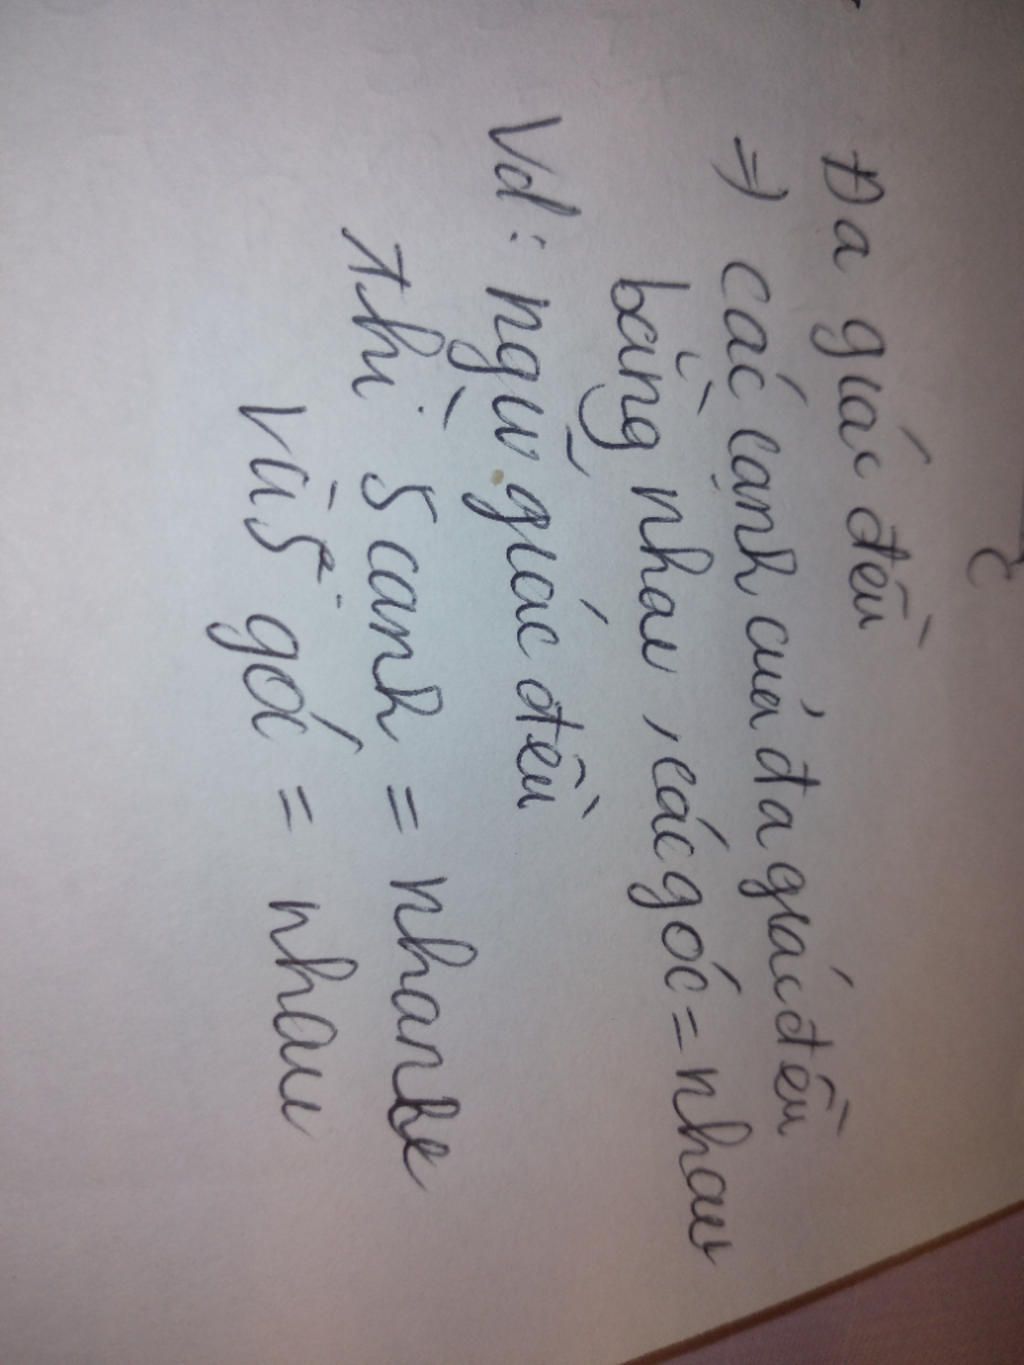 Đa giác đều
=> các cạnh của đa giác đều
bằng nhau, các góc = nhau
Vd: ngũ giác đều
thì 5 cạnh = nhau
và 5 góc = nhau